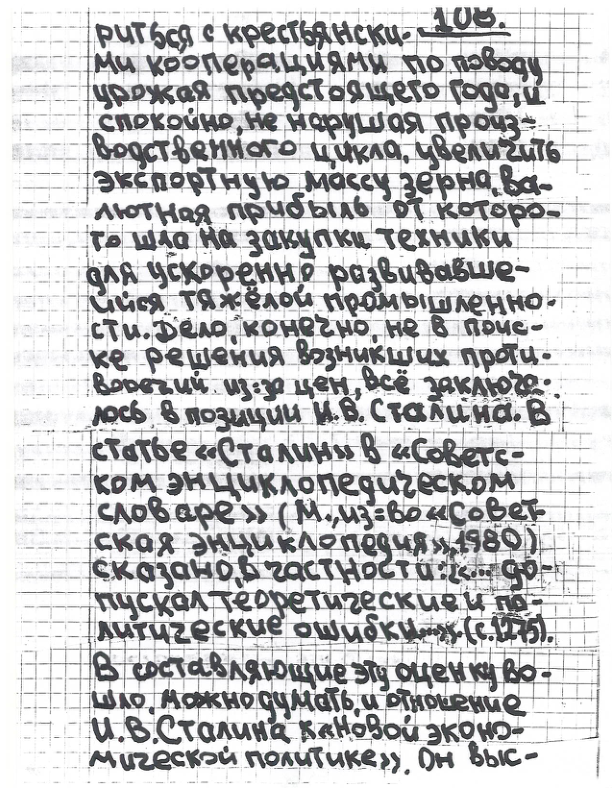 108.
риться с крестьянски-
ми кооперациями по поводу
урожая предстоящего года, и
спокойно, не нарушая произ-
водственного цикла, увеличить
экспортную массу зерна, ва-
лютная прибыль от которо-
го шла на закупки техники
для ускоренно развивавше-
йся тяжёлой промышленно-
сти. Дело, конечно, не в поис-
ке решения возникших проти-
воречий из-за цен, всё заключа-
лось в позиции И.В. Сталина. В
статье «Сталин» в «Советс-
ком энциклопедическом
словаре» (М., из-во «Совет-
ская энциклопедия», 1980)
сказано, в частности: «... до-
пускал теоретические и по-
литические ошибки...». (с. 1275).
В составляющие эту оценку во-
шло, можно думать, и отношение
И.В. Сталина к «новой эконо-
мической политике». Он выс-